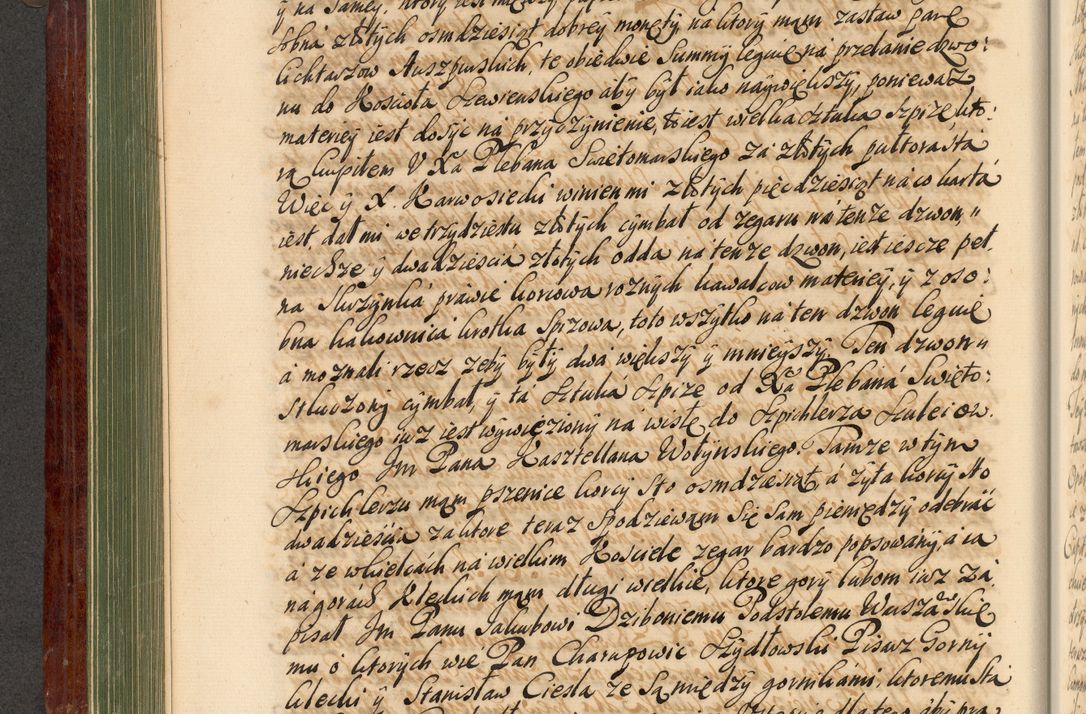 ÿ na Samey, ktory iest między
sobna złotych osmdziesiąt dobrey monety, na ktory mąm zastaw parę
lichtarzow Auszpurskich, te obiedwie Summy leguię na przelanie dzwo:
nu do Koscioła Szewienskiego aby był iako naywiększy, poniewasz
materiey iest dosyc na przyczynienie, to iest wielka sztuka szpize kto:
rą kupiłem V Xa Plebana Swiętomarskiego za złotych pułtorasta
Więc ÿ X. Karwosiecki winien mi złotych pięcdziesiąt na co karta
iest dał mi we trzydziestu złotych cymbał od zegaru na tenze dzwon,
niechze ÿ dwadziescia złotych odda na tenze dzwon, iest iescze peł
na skrzynka prawie korcowa roznych kawałcow materiey, ÿ z oso:
bna hakownica krotka Spizowa, toto wszytko na ten dzwon leguię
a moznali rzecz zeby były dwa większy ÿ mnieyszy. Ten dzwon
stłuczony cymbał, ÿ ta sztuka szpize od Xa Plebana Swięto:
marskiego iusz iest wywięziony na wisłę do szpichlerza Suleiow.
skiego Jm Pana Kasztellana Wołynskiego. Tamze w tym
Szpichlerzu mąm pszenice korcy sto osmdziesiąt, a zyta korcy sto
dwadziescia za ktore teraz spodziewąm się sam pieniędzy odebrać
a ze w Kielcach na wielkim Kosciele zegar bardzo popsowany, a ia
na gorach Kleckich mąm długi wielkie, ktore gory lubom iusz za
pisał Jm Panu Jakubowi Dziboniemu Podstolemu Warszawskie
mu o ktorych wie Pan Charapowic Szydłowski Pisarz Gorny
klecki ÿ Stanisław Cieda ze są między gornikami, ktoremu sta